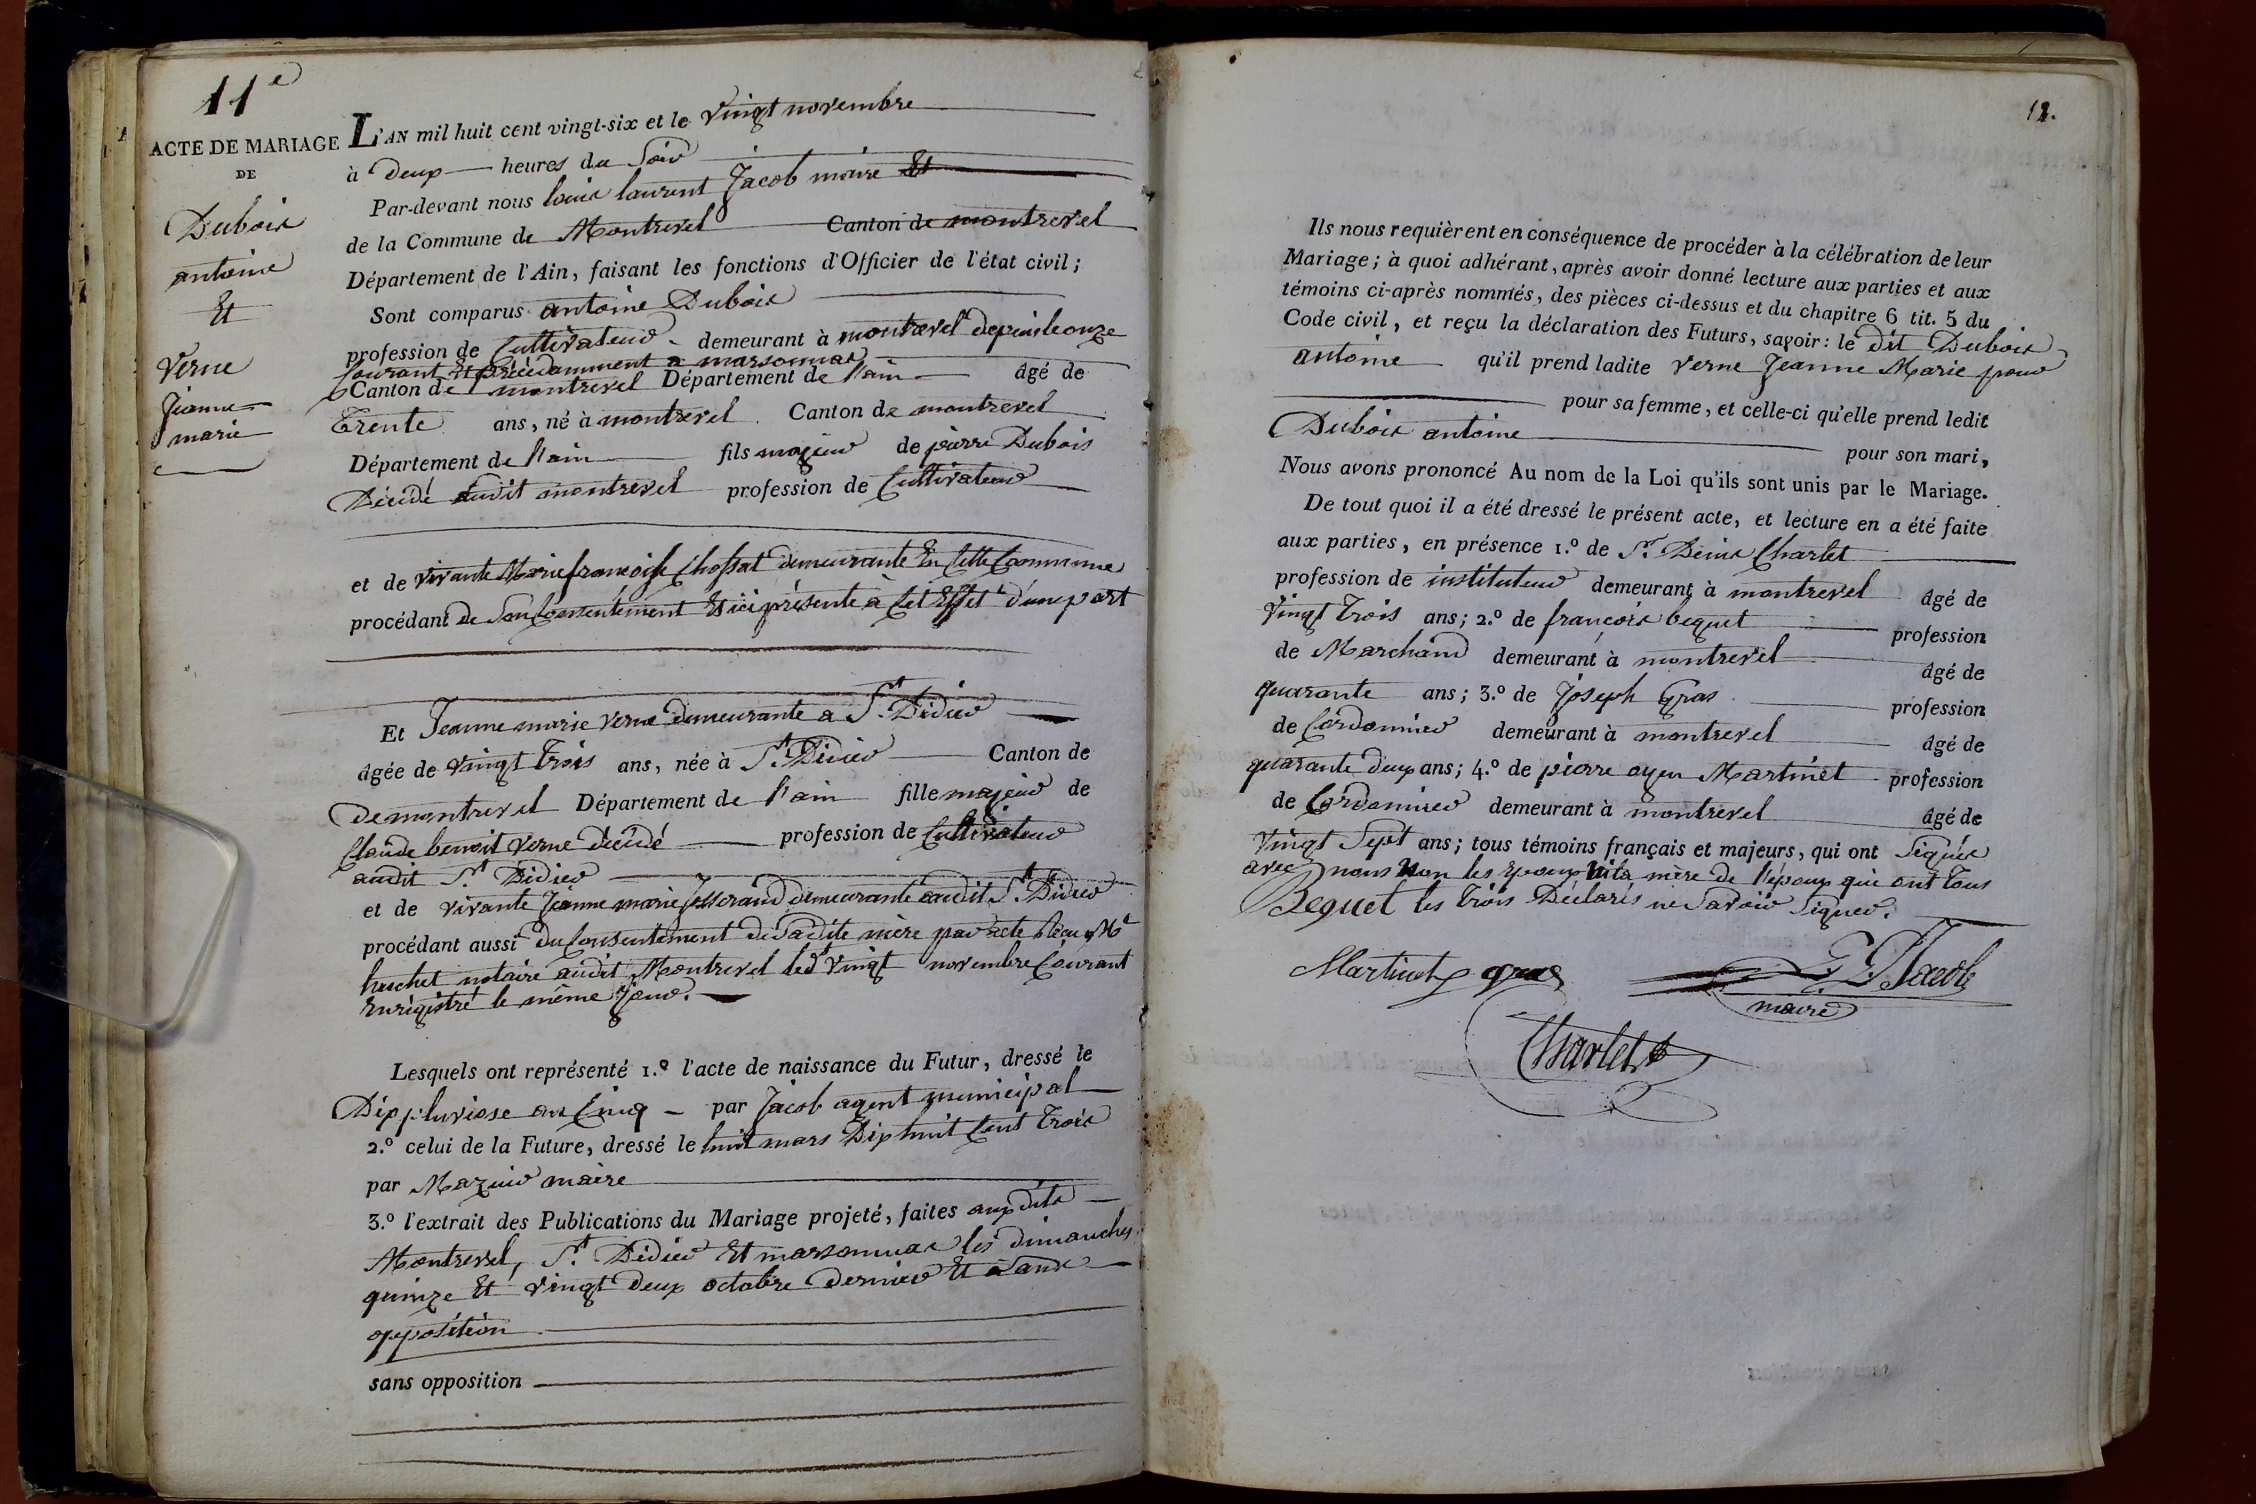 11e
ACTE DE MARIAGE
DE
Dubois
antoine
Et
Verne
Jeanne
marie
L'AN mil huit cent vingt-six et le vingt novembre
à Deux heures du Soir
Par-devant nous louis laurent Jacob maire Et
de la Commune de Montrevel Canton de montrevel
Département de l'Ain, faisant les fonctions d'Officier de l'état civil;
Sont comparus antoine Dubois
profession de Cultivateur demeurant à montrevel depuis le onze
Courant Et précédamment a marsonnas
Canton de montrevel Département de l'ain âgé de
Trente ans, né à montrevel Canton de montrevel
Département de l'ain fils majeur de pierre Dubois
Décédé audit montrevel profession de Cultivateur
et de vivante Marie françoise Chossat demeurante En Cette Commune
procédant de Son Consentement Et ici présente à Cet Effet d'une part
Et Jeanne marie verne demeurante a St. Didier
âgée de vingt trois ans, née à St. Didier Canton de
De montrevel Département de l'ain fille majeur de
Claude benoit verne décédé profession de Cultivateur
audit St. Didier
et de vivante Jeanne marie Josserand demeurante audit St. Didier
procédant aussi du Consentement de Sadite mère par acte Reçu Me
huchet notaire audit Montrevel led. vingt novembre Courant
Enregistré le même Jour.
Lesquels ont représenté 1.º l'acte de naissance du Futur, dressé le
Dix pluviose an Cinq par Jacob agent municipal
2.º celui de la Future, dressé le huit mars Dix huit Cent Trois
par Mazuir maire
3.º l'extrait des Publications du Mariage projeté, faites auxdits
Montrevel, St. Didier Et marsonnas les dimanches
quinze Et vingt Deux octobre Dernier Et Sans
opposition
sans opposition
12.
Ils nous requièrent en conséquence de procéder à la célébration de leur
Mariage; à quoi adhérant, après avoir donné lecture aux parties et aux
témoins ci-après nommés, des pièces ci-dessus et du chapitre 6 tit. 5 du
Code civil, et reçu la déclaration des Futurs, savoir: le dit Dubois
antoine qu'il prend ladite verne Jeanne Marie pour
pour sa femme, et celle-ci qu'elle prend ledit
Dubois antoine pour son mari,
Nous avons prononcé Au nom de la Loi qu'ils sont unis par le Mariage.
De tout quoi il a été dressé le présent acte, et lecture en a été faite
aux parties, en présence 1.º de Sr. Denis Charlet
profession de instituteur demeurant à montrevel âgé de
vingt Trois ans; 2.º de françois bequet profession
de Marchand demeurant à montrevel âgé de
quarante ans; 3.º de Joseph Gras profession
de Cordonnier demeurant à montrevel âgé de
quarante deux ans; 4.º de pierre Martinet profession
de Cordonnier demeurant à montrevel âgé de
vingt Sept ans; tous témoins français et majeurs, qui ont Signés
avec nous Non les Epoux la mère de l'époux qui ont tous
Bequet les Trois Déclarés ne Savoir Signer.
Martinet gras L L Jacob
maire
Charlet